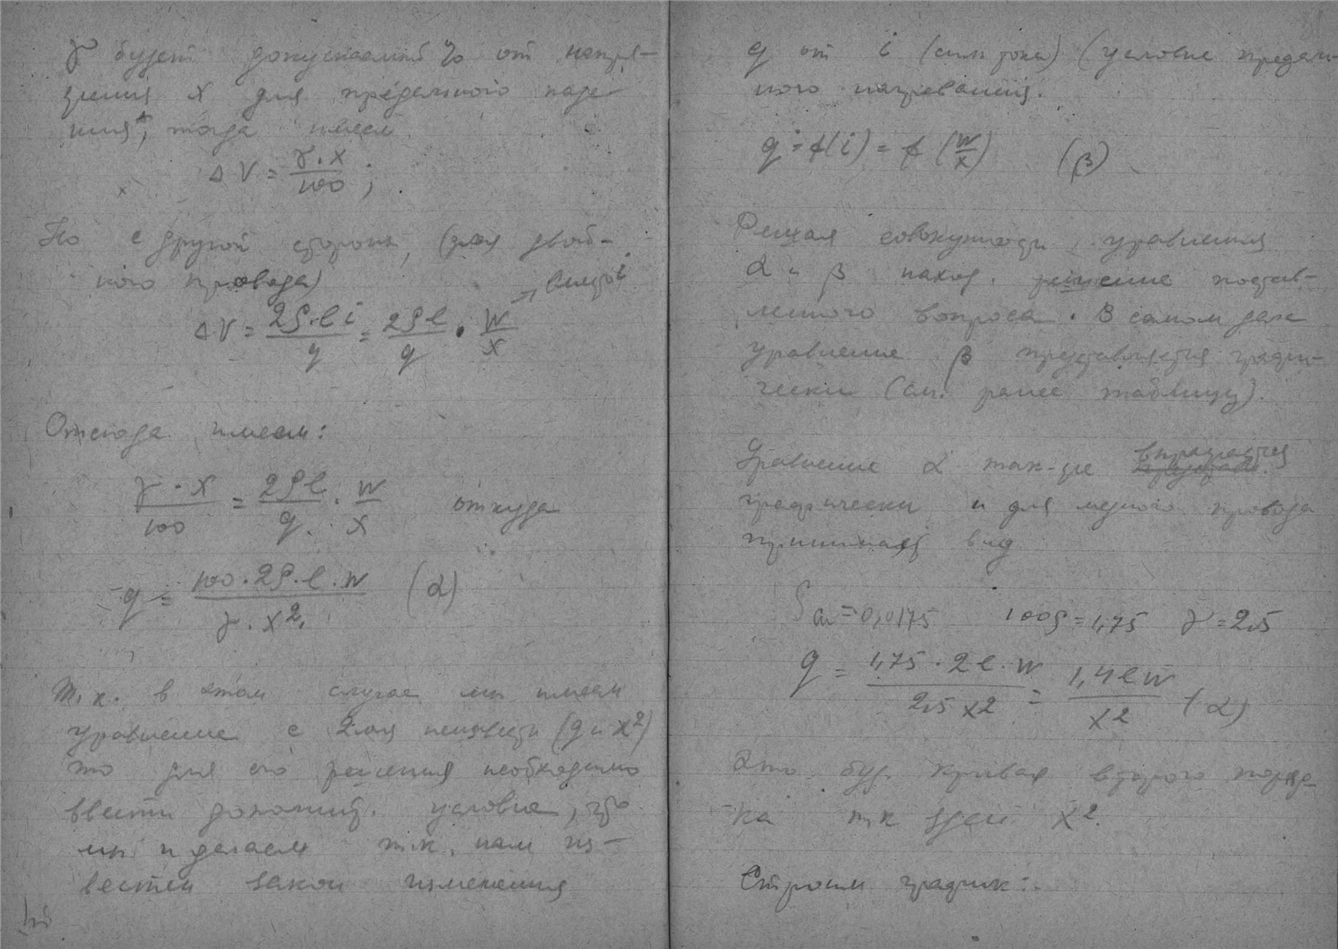 γ будет допускаемый % от напря-
жения x для предельного паде
ния, тогда имеем
ΔV = γ·x / 100 ;
Но с другой стороны, (для двой-
ного провода)
вместо i
ΔV = 2ρ·l i / q = 2ρl / q · W / x
Отсюда имеем:
γ·x / 100 = 2ρl / q · W / x откуда
q = 100·2ρ·l·W / γ·x² (α)
Т.к. в этом случае мы имеем
уравнение с 2мя неизвест (q и x²)
то для его решения необходимо
ввести дополнит. условие, что
мы и делаем т.к. нам из-
вестен закон изменения
q от i (силы тока) (условие предель
ного нагревания.
q = f(i) = f (W/x) (β)
Решая совокупности уравнения
α и β наход. решение постав-
ленного вопроса. В самом деле
уравнение β представляется графи-
чески (см. ранее таблицу).
Уравнение α так-же выражается
графически и для медного провода
принимает вид
ρcu = 0,0175 100ρ = 1,75 γ = 2.5
q = 1,75·2l·W / 2,5 x² = 1,4lW / x² (α)
Это буд. кривая второго поряд-
ка т.к здесь x².
Строим график: